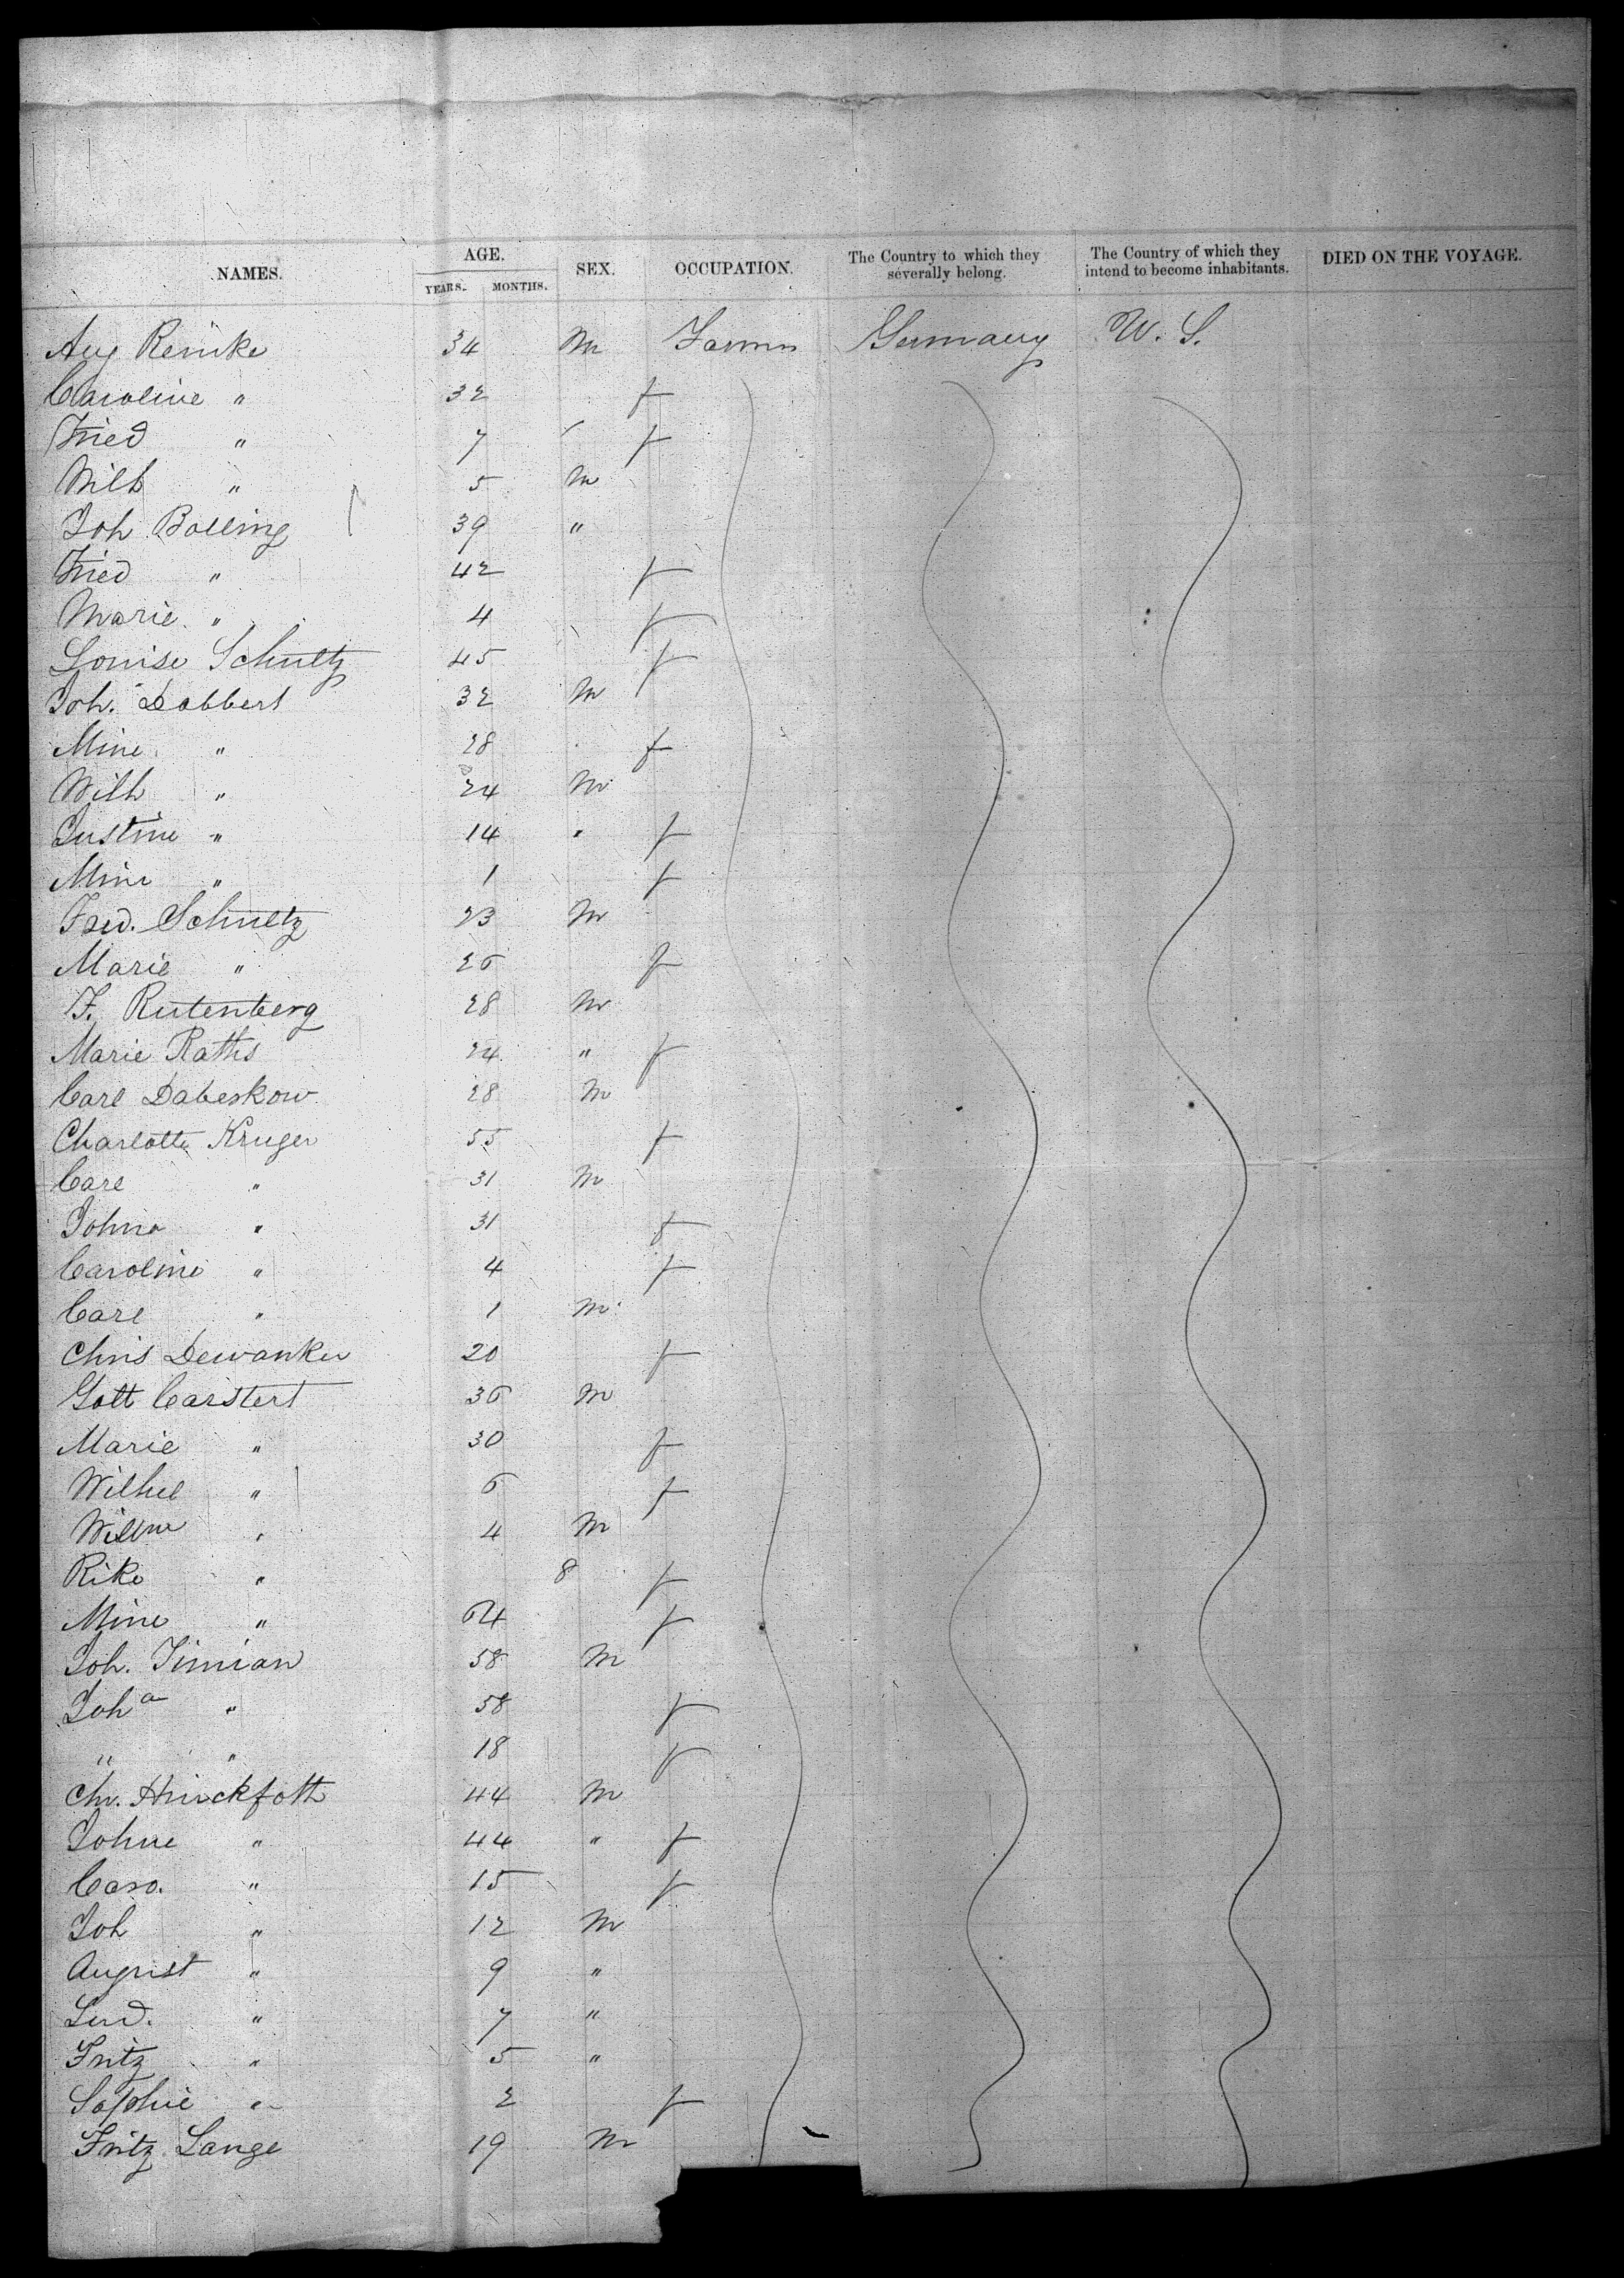 NAMES. AGE. SEX. OCCUPATION. The Country to which they severally belong. The Country of which they intend to become inhabitants. DIED ON THE VOYAGE.
YEARS. MONTHS.
Aug Reinke 34 m Farmer Germany U. S.
Caroline " 32 f
Fried " 7 f
Wilh " 5 m
Joh Bolling 39 "
Fried " 42 f
Marie " 4 f
Louise Schultz 45 f
Joh. Dobbert 32 m
Mine " 28 f
Wilh " 24 m
Justine " 14 f
Mine " 1 f
Fred. Schultz 23 m
Marie " 26 f
F. Rutenberg 28 m
Marie Raths 24 " f
Carl Dabeskow 28 m
Charlotte Kruger 55 f
Carl " 31 m
Johna " 31 f
Caroline " 4 f
Carl " 1 m
Chris Dewanker 20 f
Gott Carstert 36 m
Marie " 30 f
Wilhel " 6 f
Willm " 4 m
Rike " 8 f
Mine " 64 f
Joh. Timian 58 m
Joh a " 58 f
" " 18 f
Chr. Hinckfoth 44 m
Johne " 44 " f
Caro. " 15 f
Joh " 12 m
August " 9 "
Lud. " 7 "
Fritz " 5 "
Sophie " 2 f
Fritz Lange 19 m